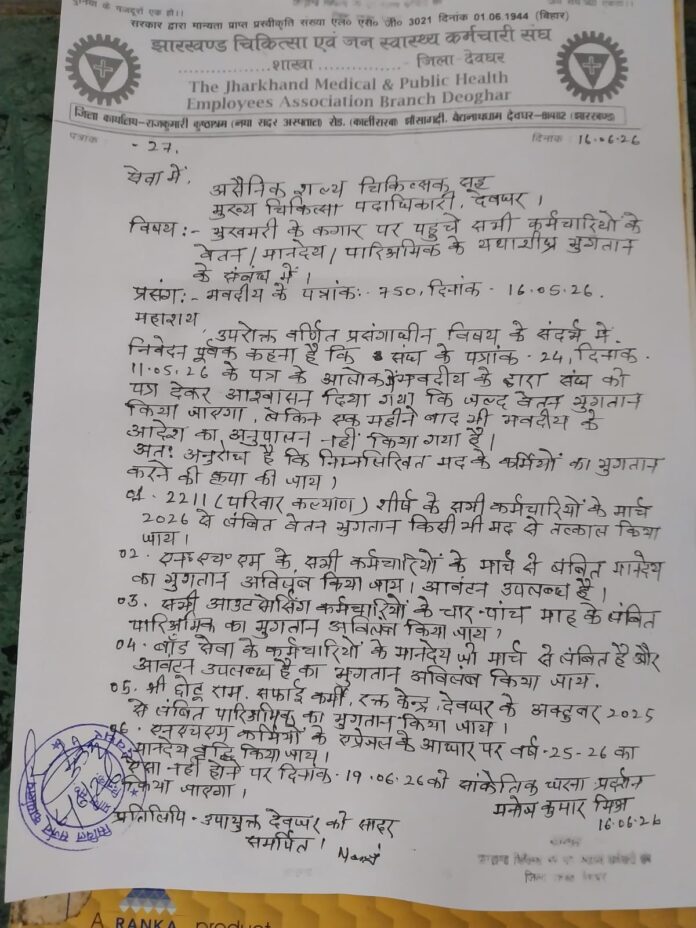 दुनिया के मजदूरों एक हो।।
सरकार द्वारा मान्यता प्राप्त प्रस्वीकृति संख्या एल० एस० जी० 3021 दिनांक 01.06.1944 (बिहार)
झारखण्ड चिकित्सा एवं जन स्वास्थ्य कर्मचारी संघ
शाखा - जिला-देवघर
The Jharkhand Medical & Public Health
Employees Association Branch Deoghar
जिला कार्यालय-राजकुमारी कुष्ठाश्रम (नया सदर अस्पताल) रोड, वैद्यनाथधाम देवघर- (झारखण्ड)
पत्रांक - 27. दिनांक : 16.06.26
सेवा में,
असैनिक शल्य चिकित्सक सह
मुख्य चिकित्सा पदाधिकारी, देवघर।
विषय:- भुखमरी के कगार पर पहुचे सभी कर्मचारियों के
वेतन/मानदेय/पारिश्रमिक के यथाशीघ्र भुगतान
के संबंध में।
प्रसंग:- भवदीय के पत्रांक:- 750, दिनांक - 16.05.26.
महाशय,
उपरोक्त वर्णित प्रसंगाधीन विषय के संदर्भ में.
निवेदन पूर्वक कहना है कि संघ के पत्रांक - 24, दिनांक -
11.05.26 के पत्र के आलोक में भवदीय के द्वारा संघ को
पत्र देकर आश्वासन दिया गया कि जल्द वेतन भुगतान
किया जाएगा, लेकिन एक महीने बाद भी भवदीय के
आदेश का अनुपालन नहीं किया गया है।
अतः अनुरोध है कि निम्नलिखित मद के कर्मियों का भुगतान
करने की कृपा की जाय।
01. 2211 (परिवार कल्याण) शीर्ष के सभी कर्मचारियों के मार्च
2026 से लंबित वेतन भुगतान किसी भी मद से तत्काल किया
जाय।
02. एन० एच० एम के सभी कर्मचारियों के मार्च से लंबित मानदेय
का भुगतान अविलंब किया जाय। आवंटन उपलब्ध है।
03. सभी आउटसोर्सिंग कर्मचारियों के चार-पांच माह के लंबित
पारिश्रमिक का भुगतान अविलंब किया जाय।
04. बॉंड सेवा के कर्मचारियों के मानदेय जो मार्च से लंबित है और
आवंटन उपलब्ध है का भुगतान अविलंब किया जाय.
05. श्री छोटू राम, सफाई कर्मी, रक्त केन्द्र, देवघर के अक्टुबर 2025
से लंबित पारिश्रमिक का भुगतान किया जाय।
06. एनएचएम कर्मियों के एप्रेजल के आधार पर वर्ष-25-26 का
मानदेय वृद्धि किया जाय।
ऐसा नहीं होने पर दिनांक - 19.06.26 को सांकेतिक धरना प्रदर्शन
किया जाएगा।
मनोज कुमार मिश्र
16.06.26
प्रतिलिपि - उपायुक्त देवघर को सादर
समर्पित।
A RANKA product